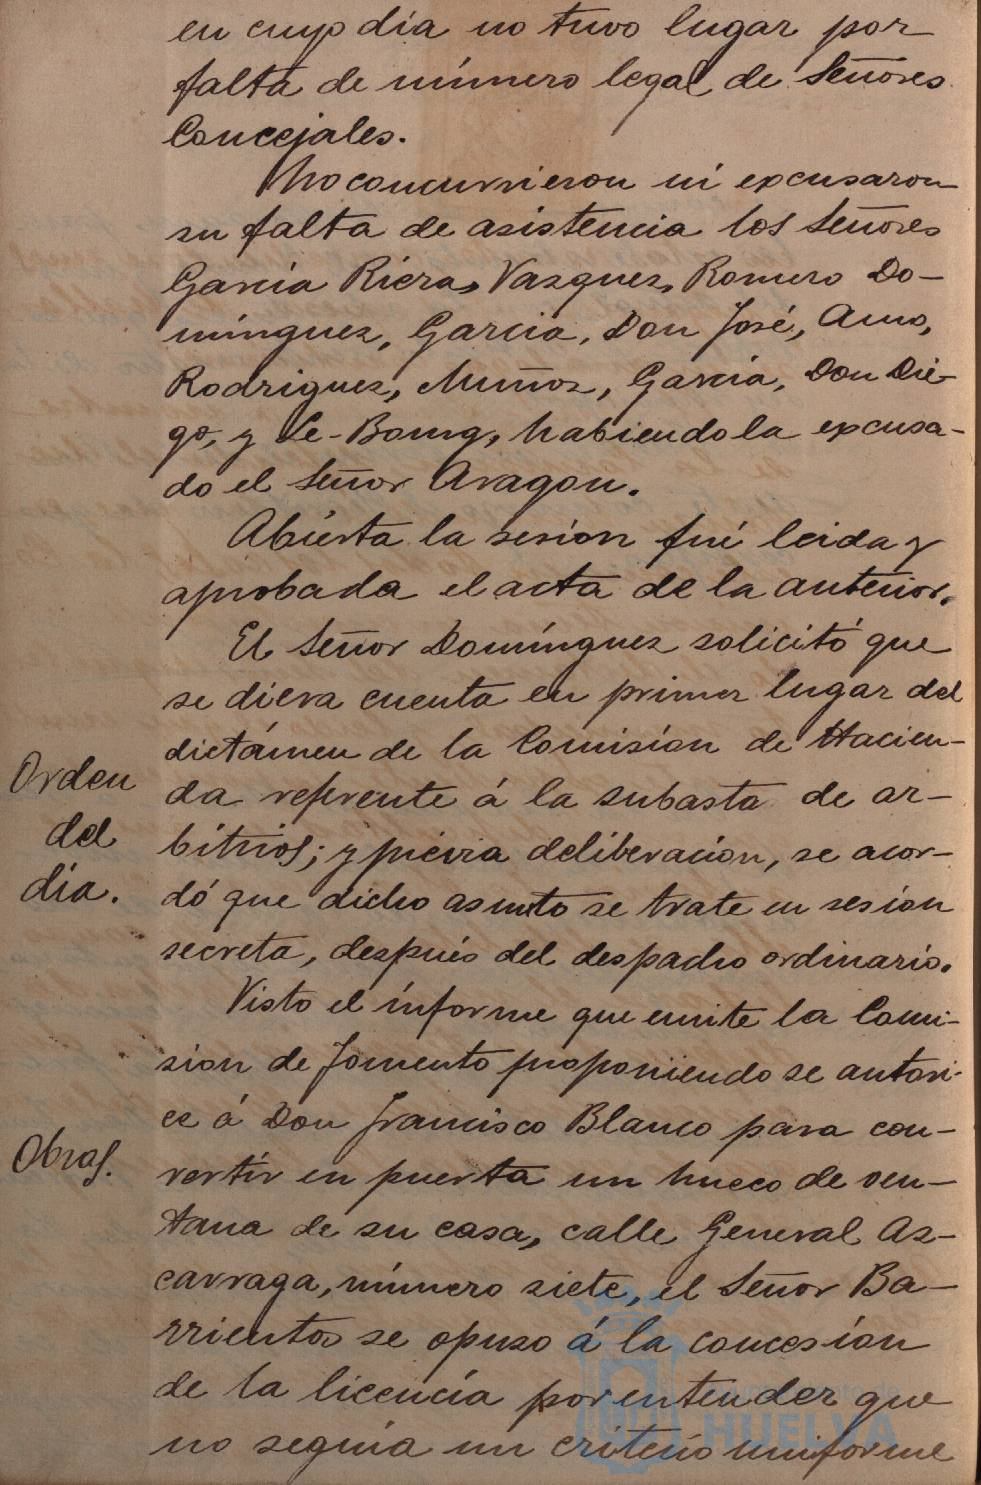 en cuyo dia no tuvo lugar por
falta de número legal de Señores
Concejales.
No concurrieron ni excusaron
su falta de asistencia los Señores
Garcia Riera, Vazquez, Romero Do-
minguez, Garcia, Don José, Amo,
Rodriguez, Muñoz, Garcia, Don Die-
go, y Le-Bourg, habiendola excusa-
do el Señor Aragon.
Abierta la sesion fué leida y
aprobada el acta de la anterior.
El Señor Domínguez solicitó que
se diera cuenta en primer lugar del
dictámen de la Comision de Hacien-
Orden
del
dia.
da referente á la subasta de ar-
bitrios; y prévia deliberacion, se acor-
dó que dicho asunto se trate en sesion
secreta, después del despacho ordinario.
Visto el informe que emite la Comi-
sion de Fomento proponiendo se autori-
ce á Don Francisco Blanco para con-
Obras.
vertir en puerta un hueco de ven-
tana de su casa, calle General Az-
carraga, número siete, el Señor Ba-
rrientos se opuso á la concesion
de la licencia por entender que
no seguia un criterio uniforme
HUELVA